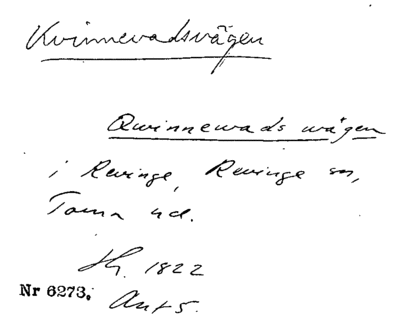 Kvinnevadsvägen
Qwinnewads wägen
i Revinge, Revinge sn,
Torna hd.
1822
Nr 6273. Ant 5.